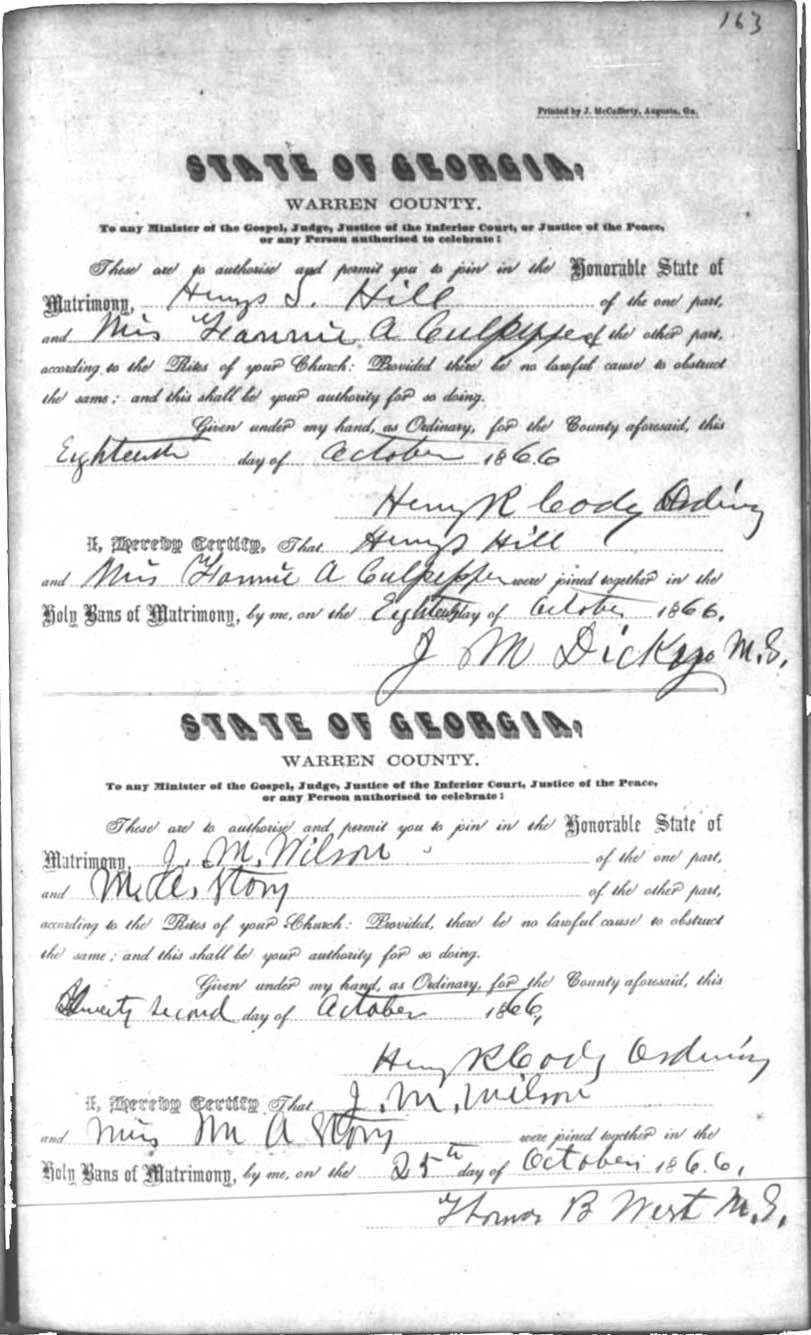 163
Printed by J. McCafferty, Augusta, Ga.
STATE OF GEORGIA,
WARREN COUNTY.
To any Minister of the Gospel, Judge, Justice of the Inferior Court, or Justice of the Peace,
or any Person authorised to celebrate:
These are to authorise and permit you to join in the Honorable State of
Matrimony, Henry S. Hill of the one part,
and Miss Fannie A Culpepper of the other part,
according to the Rites of your Church: Provided there be no lawful cause to obstruct
the same; and this shall be your authority for so doing.
Given under my hand, as Ordinary, for the County aforesaid, this
Eighteenth day of October 1866
Henry R Cody Ordiny
I, Hereby Certify, That Henry S Hill
and Miss Fannie A Culpepper were joined together in the
Holy Bans of Matrimony, by me, on the Eighteenth day of October 1866.
J M Dickey M.G.
STATE OF GEORGIA,
WARREN COUNTY.
To any Minister of the Gospel, Judge, Justice of the Inferior Court, Justice of the Peace,
or any Person authorised to celebrate:
These are to authorise and permit you to join in the Honorable State of
Matrimony, J. M. Wilson of the one part,
and M. A. Story of the other part,
according to the Rites of your Church: Provided, there be no lawful cause to obstruct
the same; and this shall be your authority for so doing.
Given under my hand, as Ordinary, for the County aforesaid, this
Twenty second day of October 1866,
Henry R Cody Ordinary
I, Hereby Certify That J. M. Wilson
and Miss M A Story were joined together in the
Holy Bans of Matrimony, by me, on the 25th day of October 1866.
Thomas B West M.G.